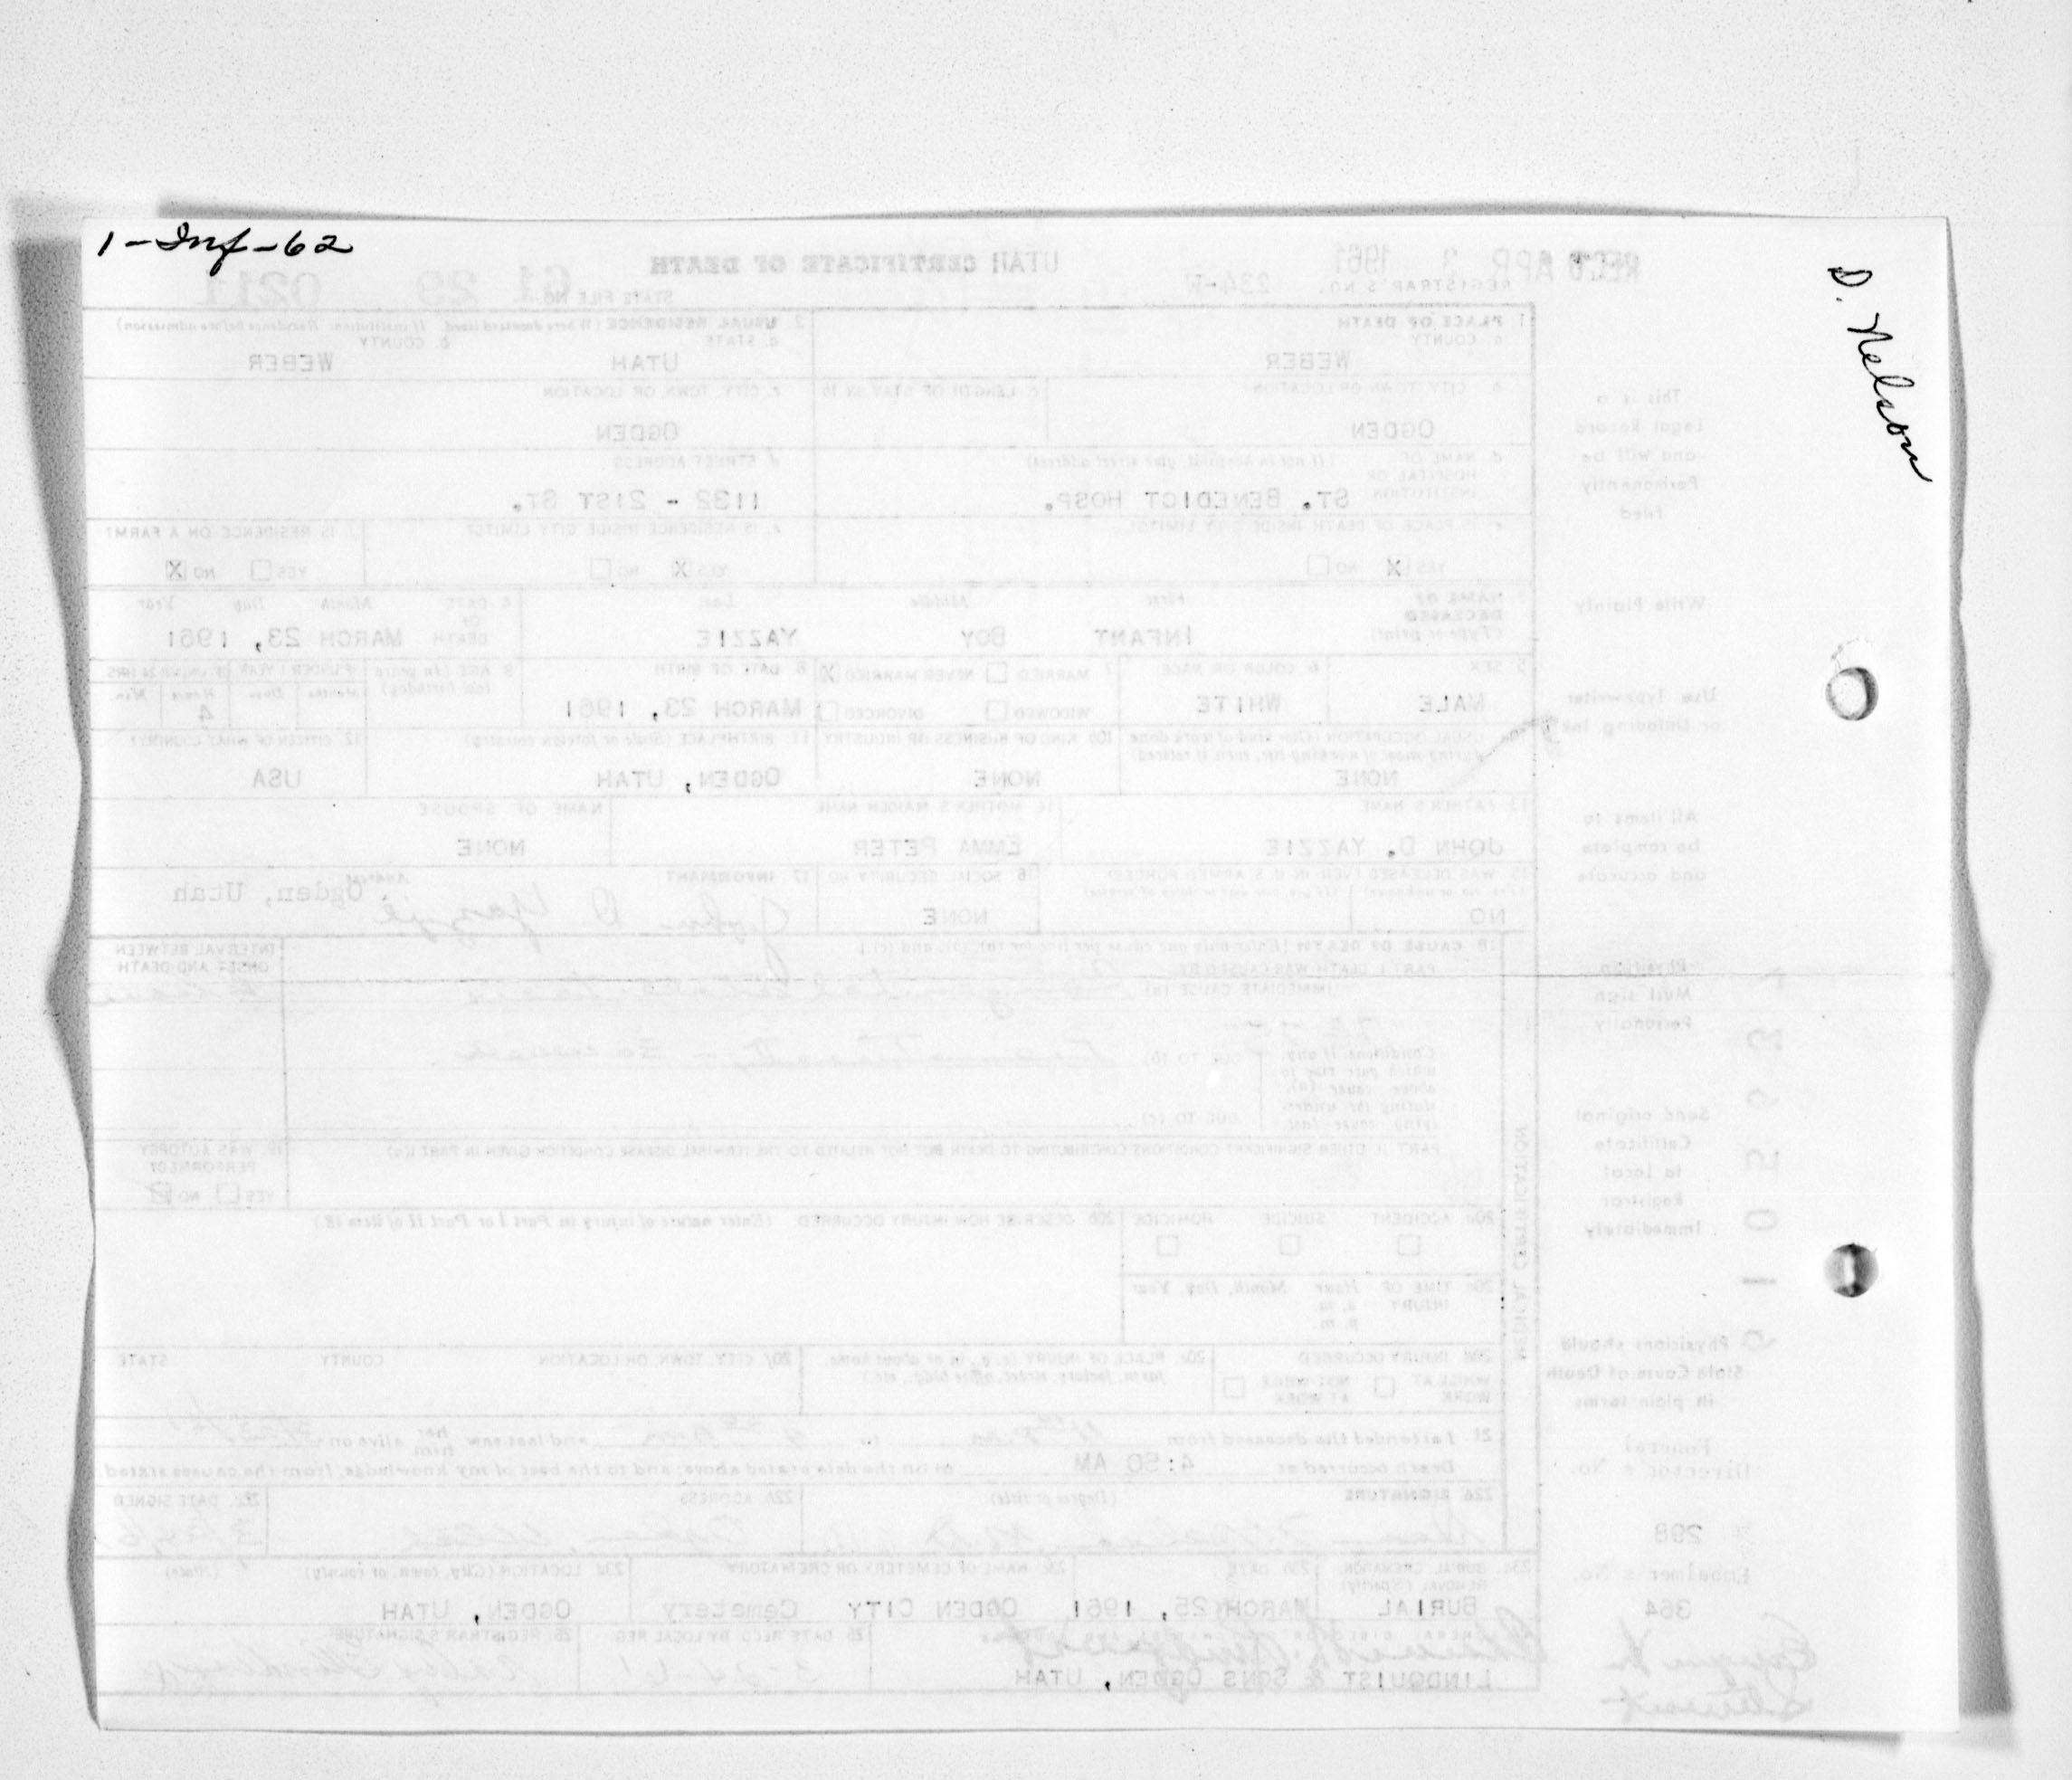 1-Inf-62
D. Nelson
REC'D APR 3 1961
UTAH CERTIFICATE OF DEATH
REGISTRAR'S NO. 234-W
STATE FILE NO. 61 29 0211
1 PLACE OF DEATH
a. COUNTY
WEBER
2. USUAL RESIDENCE (Where deceased lived. If institution: Residence before admission)
a. STATE b. COUNTY
UTAH WEBER
b. CITY, TOWN OR LOCATION
OGDEN
c. LENGTH OF STAY IN 1b
c. CITY, TOWN OR LOCATION
OGDEN
d. NAME OF HOSPITAL OR INSTITUTION (If not in hospital, give street address)
ST. BENEDICT HOSP.
d. STREET ADDRESS
1132 - 21ST ST.
e. IS PLACE OF DEATH INSIDE CITY LIMITS?
YES X NO
e. IS RESIDENCE INSIDE CITY LIMITS?
YES X NO
f. IS RESIDENCE ON A FARM?
YES NO X
3. NAME OF DECEASED (Type or print) First Middle Last
INFANT BOY YAZZIE
4. DATE OF DEATH Month Day Year
MARCH 23, 1961
5. SEX
MALE
6. COLOR OR RACE
WHITE
7. MARRIED NEVER MARRIED X
WIDOWED DIVORCED
8. DATE OF BIRTH
MARCH 23, 1961
9. AGE (In years last birthday) IF UNDER 1 YEAR IF UNDER 24 HRS
Months Days Hours Min.
4
10a. USUAL OCCUPATION (Give kind of work done during most of working life, even if retired)
NONE
10b. KIND OF BUSINESS OR INDUSTRY
NONE
11. BIRTHPLACE (State or foreign country)
OGDEN, UTAH
12. CITIZEN OF WHAT COUNTRY?
USA
13. FATHER'S NAME
JOHN D. YAZZIE
14. MOTHER'S MAIDEN NAME
EMMA PETER
NAME OF SPOUSE
NONE
15. WAS DECEASED EVER IN U.S. ARMED FORCES?
NO
16. SOCIAL SECURITY NO.
NONE
17. INFORMANT Address
John D. Yazzie Ogden, Utah
18. CAUSE OF DEATH [Enter only one cause per line for (a), (b), and (c).]
PART I. DEATH WAS CAUSED BY:
IMMEDIATE CAUSE (a)
INTERVAL BETWEEN ONSET AND DEATH
Conditions, if any, which gave rise to above cause (a), stating the underlying cause last.
DUE TO (b)
DUE TO (c)
PART II. OTHER SIGNIFICANT CONDITIONS CONTRIBUTING TO DEATH BUT NOT RELATED TO THE TERMINAL DISEASE CONDITION GIVEN IN PART I(a)
19. WAS AUTOPSY PERFORMED?
YES NO
20a. ACCIDENT SUICIDE HOMICIDE
20b. DESCRIBE HOW INJURY OCCURRED. (Enter nature of injury in Part I or Part II of item 18.)
20c. TIME OF INJURY Hour Month, Day, Year
a. m.
p. m.
20d. INJURY OCCURRED
WHILE AT WORK NOT WHILE AT WORK
20e. PLACE OF INJURY (e.g., in or about home, farm, factory, street, office bldg., etc.)
20f. CITY, TOWN, OR LOCATION COUNTY STATE
21. I attended the deceased from to and last saw her him alive on
Death occurred at 4:50 AM m on the date stated above; and to the best of my knowledge, from the causes stated.
22a. SIGNATURE (Degree or title)
22b. ADDRESS
Ogden, Utah
22c. DATE SIGNED
23a. BURIAL, CREMATION, REMOVAL (Specify)
BURIAL
23b. DATE
MARCH 25, 1961
23c. NAME OF CEMETERY OR CREMATORY
OGDEN CITY Cemetery
23d. LOCATION (City, town, or county) (State)
OGDEN, UTAH
LINDQUIST & SONS OGDEN, UTAH
25. DATE RECD BY LOCAL REG.
3-24-61
26. REGISTRAR'S SIGNATURE
MEDICAL CERTIFICATION
This is a
Legal Record
and will be
Permanently
filed
Write Plainly
Use Typewriter
or Unfading Ink
All items to
be complete
and accurate
Physician
Must sign
Personally
Send original
Certificate
to Local
Registrar
Immediately
Physicians should
State Cause of Death
in plain terms
Funeral
Director's No.
298
Embalmer's No.
364